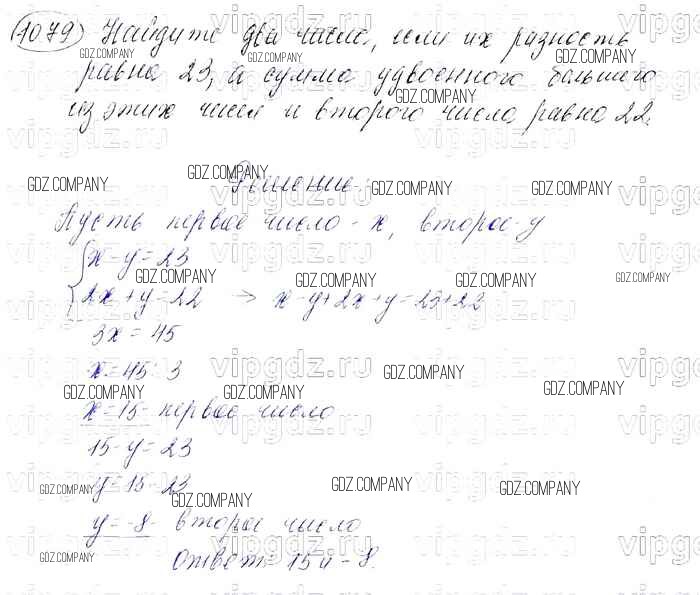 1079) Найдите два числа, если их разность
равна 23, а сумма удвоенного большего
из этих чисел и второго числа равна 22.
Решение:
Пусть первое число - x, второе - y
x - y = 23
2x + y = 22 → x - y + 2x + y = 23 + 22
3x = 45
x = 45 : 3
x = 15 - первое число
15 - y = 23
y = 15 - 23
y = -8 - второе число
Ответ: 15 и -8.
GDZ.COMPANY
vipgdz.ru